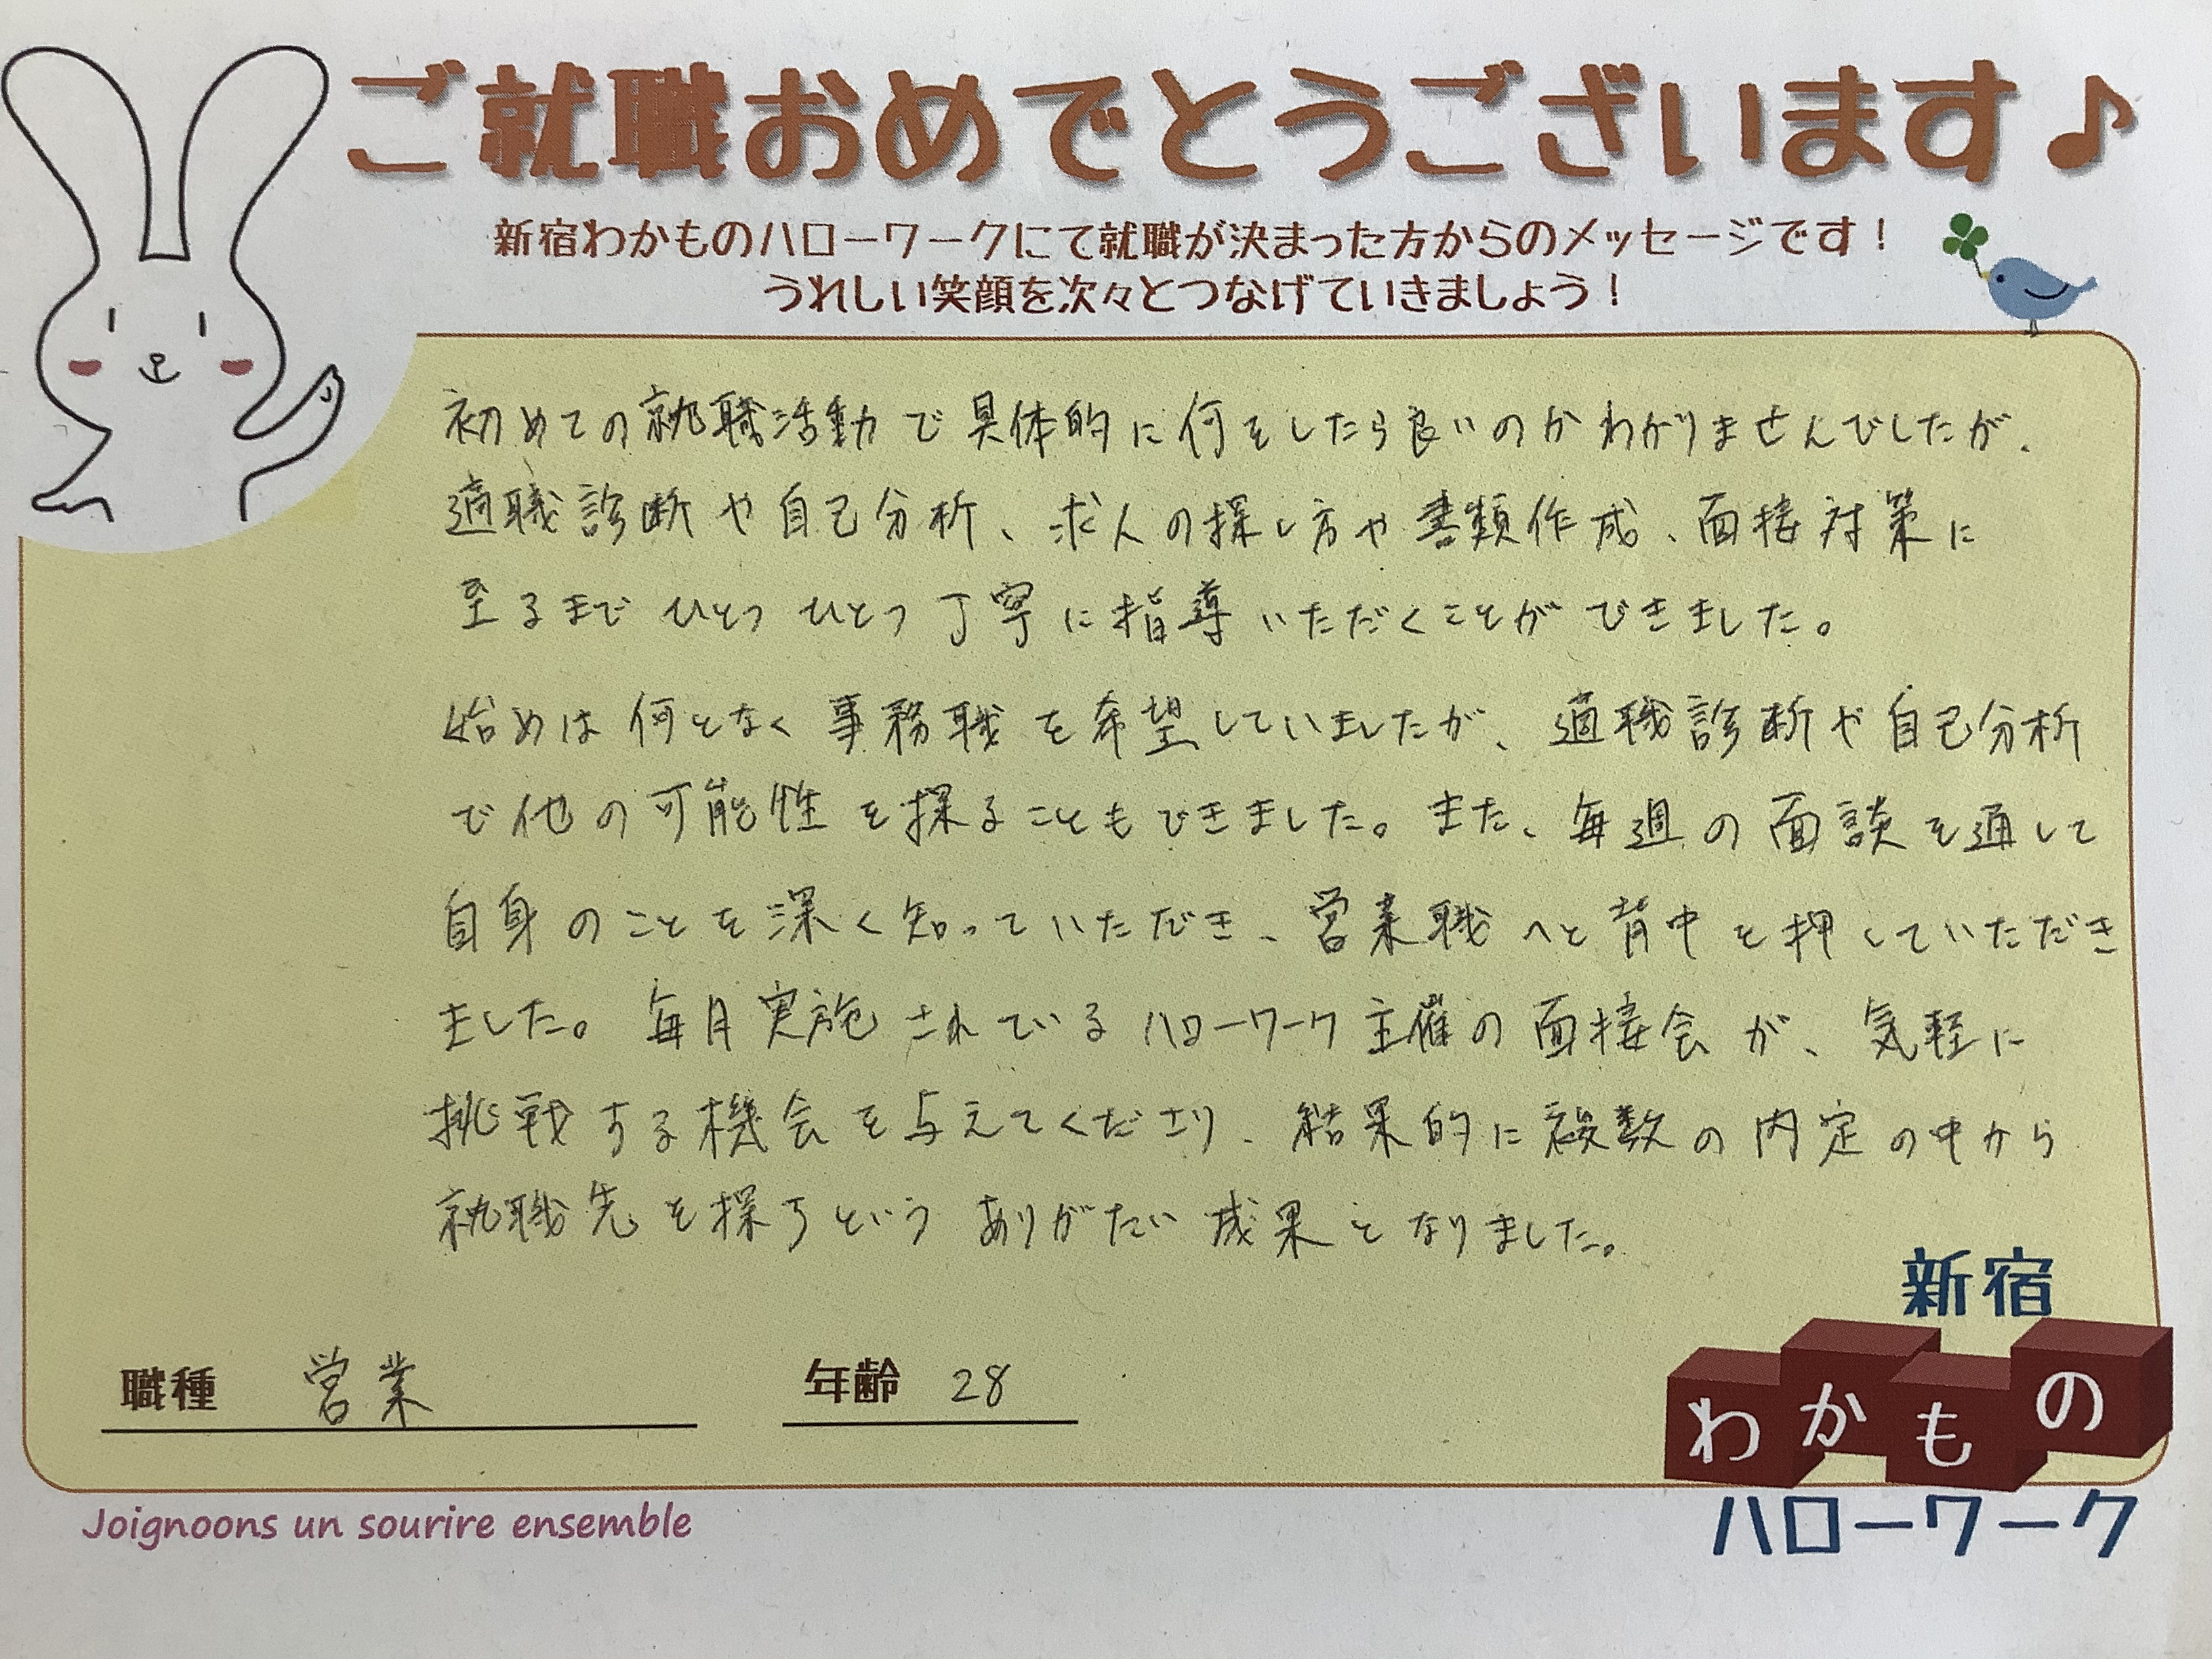 ご就職おめでとうございます♪
新宿わかものハローワークにて就職が決まった方からのメッセージです！
うれしい笑顔を次々とつなげていきましょう！
初めての就職活動で具体的に何をしたら良いのかわかりませんでしたが、
適職診断や自己分析、求人の探し方や書類作成、面接対策に
至るまでひとつひとつ丁寧に指導いただくことができました。
始めは何となく事務職を希望していましたが、適職診断や自己分析
で他の可能性を探ることもできました。また、毎週の面談を通して
自身のことを深く知っていただき、営業職へと背中を押していただき
ました。毎月実施されているハローワーク主催の面接会が、気軽に
挑戦する機会を与えてくださり、結果的に複数の内定の中から
就職先を探すというありがたい成果となりました。
職種 営業
年齢 28
新宿
わかもの
ハローワーク
Joignoons un sourire ensemble